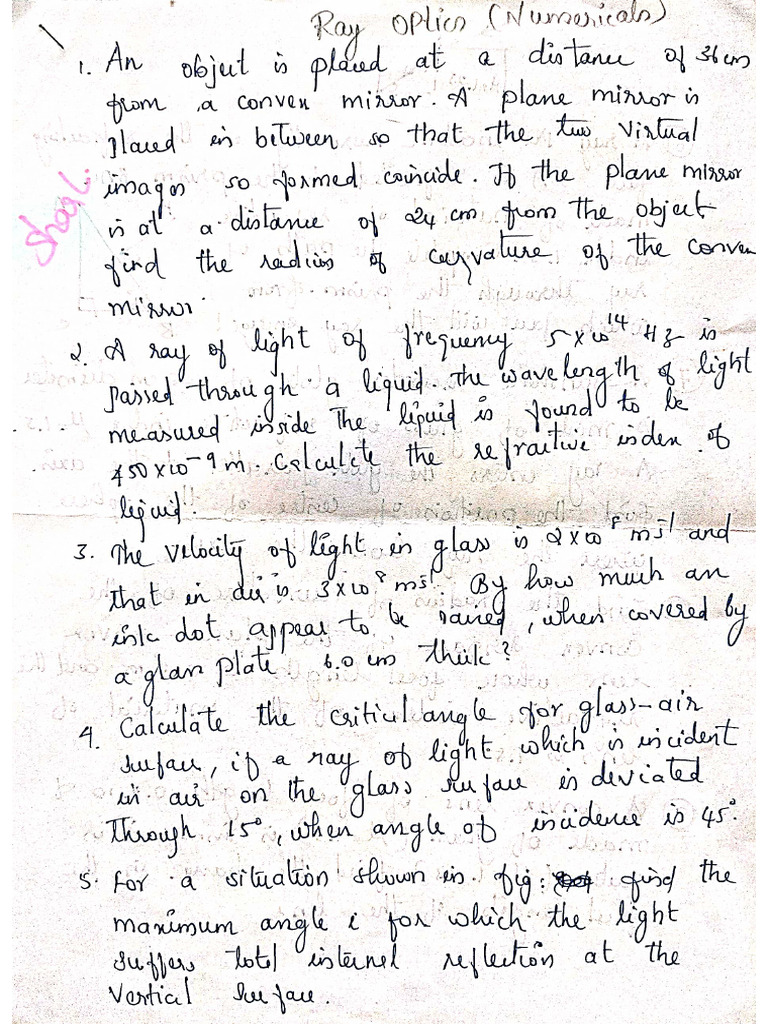 Ray Optics (Numericals)
1. An object is placed at a distance of 36 cm
from a convex mirror. A plane mirror is
placed in between so that the two virtual
images so formed coincide. If the plane mirror
is at a distance of 24 cm from the object
find the radius of curvature of the convex
mirror.
2. A ray of light of frequency 5 x 10¹⁴ Hz is
passed through a liquid. The wavelength of light
measured inside the liquid is found to be
450 x 10⁻⁹ m. Calculate the refractive index of
liquid.
3. The velocity of light in glass is 2 x 10⁸ ms⁻¹ and
that in air is 3 x 10⁸ ms⁻¹. By how much an
ink dot appear to be raised, when covered by
a glass plate 6.0 cm thick?
4. Calculate the critical angle for glass-air
surface, if a ray of light which is incident
in air on the glass surface is deviated
through 15°, when angle of incidence is 45°.
5. For a situation shown in fig: find the
maximum angle i for which the light
suffers total internal reflection at the
vertical surface.